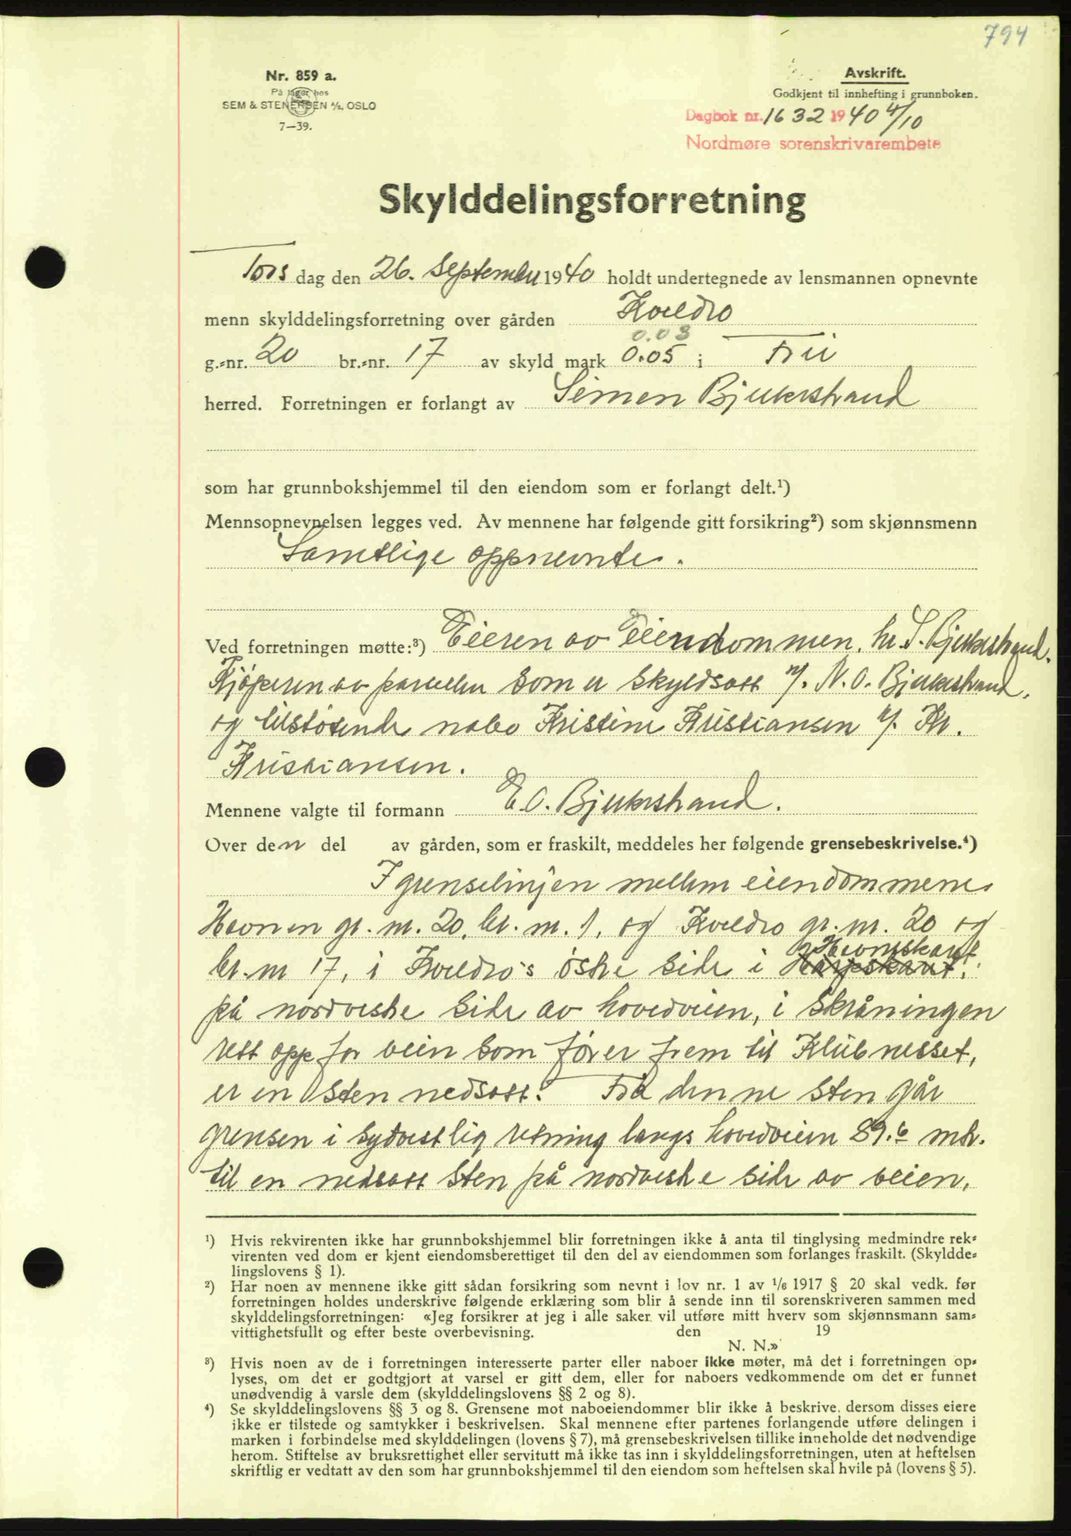 794
Nr. 859 a.
På lager hos
SEM & STENERSEN A/S, OSLO
7-39.
Avskrift.
Godkjent til innhefting i grunnboken.
Dagbok nr. 1632 1940 4/10
Nordmøre sorenskrivarembete
Skylddelingsforretning
Tors dag den 26. September 1940 holdt undertegnede av lensmannen opnevnte
menn skylddelingsforretning over gården Kveldro
0.03
g.-nr. 20 br.-nr. 17 av skyld mark 0.05 i Frei
herred. Forretningen er forlangt av Simen Bjerkestrand
som har grunnbokshjemmel til den eiendom som er forlangt delt.¹)
Mennsopnevnelsen legges ved. Av mennene har følgende gitt forsikring²) som skjønnsmenn
Samtlige oppnevnte.
Ved forretningen møtte:³) Eieren av Eiendommen, hr. S. Bjerkestrand.
Kjøperen av parsellen som er skyldsatt v/. N. O. Bjerkestrand,
og tilstøtende nabo Kristine Kristiansen v/. Kr.
Kristiansen.
Mennene valgte til formann E. O. Bjerkestrand.
Over den del av gården, som er fraskilt, meddeles her følgende grensebeskrivelse.⁴)
I grenselinjen mellem eiendommene
Havnen gr. nr. 20, br. nr. 1, og Kveldro gr. nr. 20 og
br. nr 17, i Kveldro's østre side i
på nordvestre side av hovedveien, i skråningen
rett opp for veien som fører frem til Klubneset,
er en sten nedsatt. Fra denne sten går
grensen i sydvestlig retning langs hovedveien 89.6 mtr.
til en nedsatt sten på nordvestre side av veien,
¹) Hvis rekvirenten ikke har grunnbokshjemmel blir forretningen ikke å anta til tinglysing medmindre rek-
virenten ved dom er kjent eiendomsberettiget til den del av eiendommen som forlanges fraskilt. (Skyldde-
lingslovens § 1).
²) Har noen av mennene ikke gitt sådan forsikring som nevnt i lov nr. 1 av 1/6 1917 § 20 skal vedk. før
forretningen holdes underskrive følgende erklæring som blir å sende inn til sorenskriveren sammen med
skylddelingsforretningen: «Jeg forsikrer at jeg i alle saker vil utføre mitt hverv som skjønnsmann sam-
vittighetsfullt og efter beste overbevisning. den 19
N. N.»
³) Hvis noen av de i forretningen interesserte parter eller naboer ikke møter, må det i forretningen op-
lyses, om det er godtgjort at varsel er gitt dem, eller for naboers vedkommende om det er funnet
unødvendig å varsle dem (skylddelingslovens §§ 2 og 8).
⁴) Se skylddelingslovens §§ 3 og 8. Grensene mot naboeiendommer blir ikke å beskrive, dersom disses eiere
ikke er tilstede og samtykker i beskrivelsen. Skal mennene efter partenes forlangende utføre delingen i
marken i forbindelse med skylddelingen (lovens § 7), må grensebeskrivelsen tillike inneholde det nødvendige
herom. Stiftelse av bruksrettighet eller servitutt må ikke tas inn i skylddelingsforretningen, uten at heftelsen
skriftlig er vedtatt av den som har grunnbokshjemmel til den eiendom som heftelsen skal hvile på (lovens § 5).